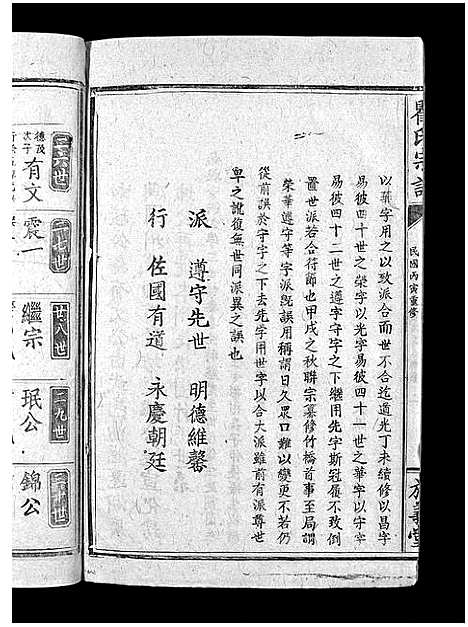 瞿氏宗譜
民國丙寅重修
以華字用之以致派合而世不合迄道光丁未續修以昌字
易彼四十世之榮字以光字易彼四十一世之華字以守字
易彼四十二世之遵字守字之下繼用先字斯冠履不致倒
置世派若合符節也甲戌之秋聯宗纂修竹橋首事至局謂
榮華遵守等字派既誤用稱謂日久眾口難以變更不若仍
從前誤於守字之下去先字用世字以合大派雖前有派尊世
卑之訛復無世同派異之誤也
派　遵守先世　明德維馨
行　佐國有道　永慶朝廷
二六世
二七世
廿八世
二九世
三十世
德茂
次子
有文
震一
繼宗
珉公
錦公